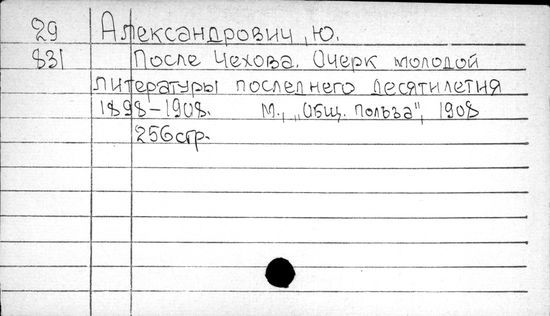 29 Александрович, Ю.
831 После Чехова. Очерк молодой
литературы последнего десятилетия
1898-1908. М., „Общ. Польза", 1908
256стр.